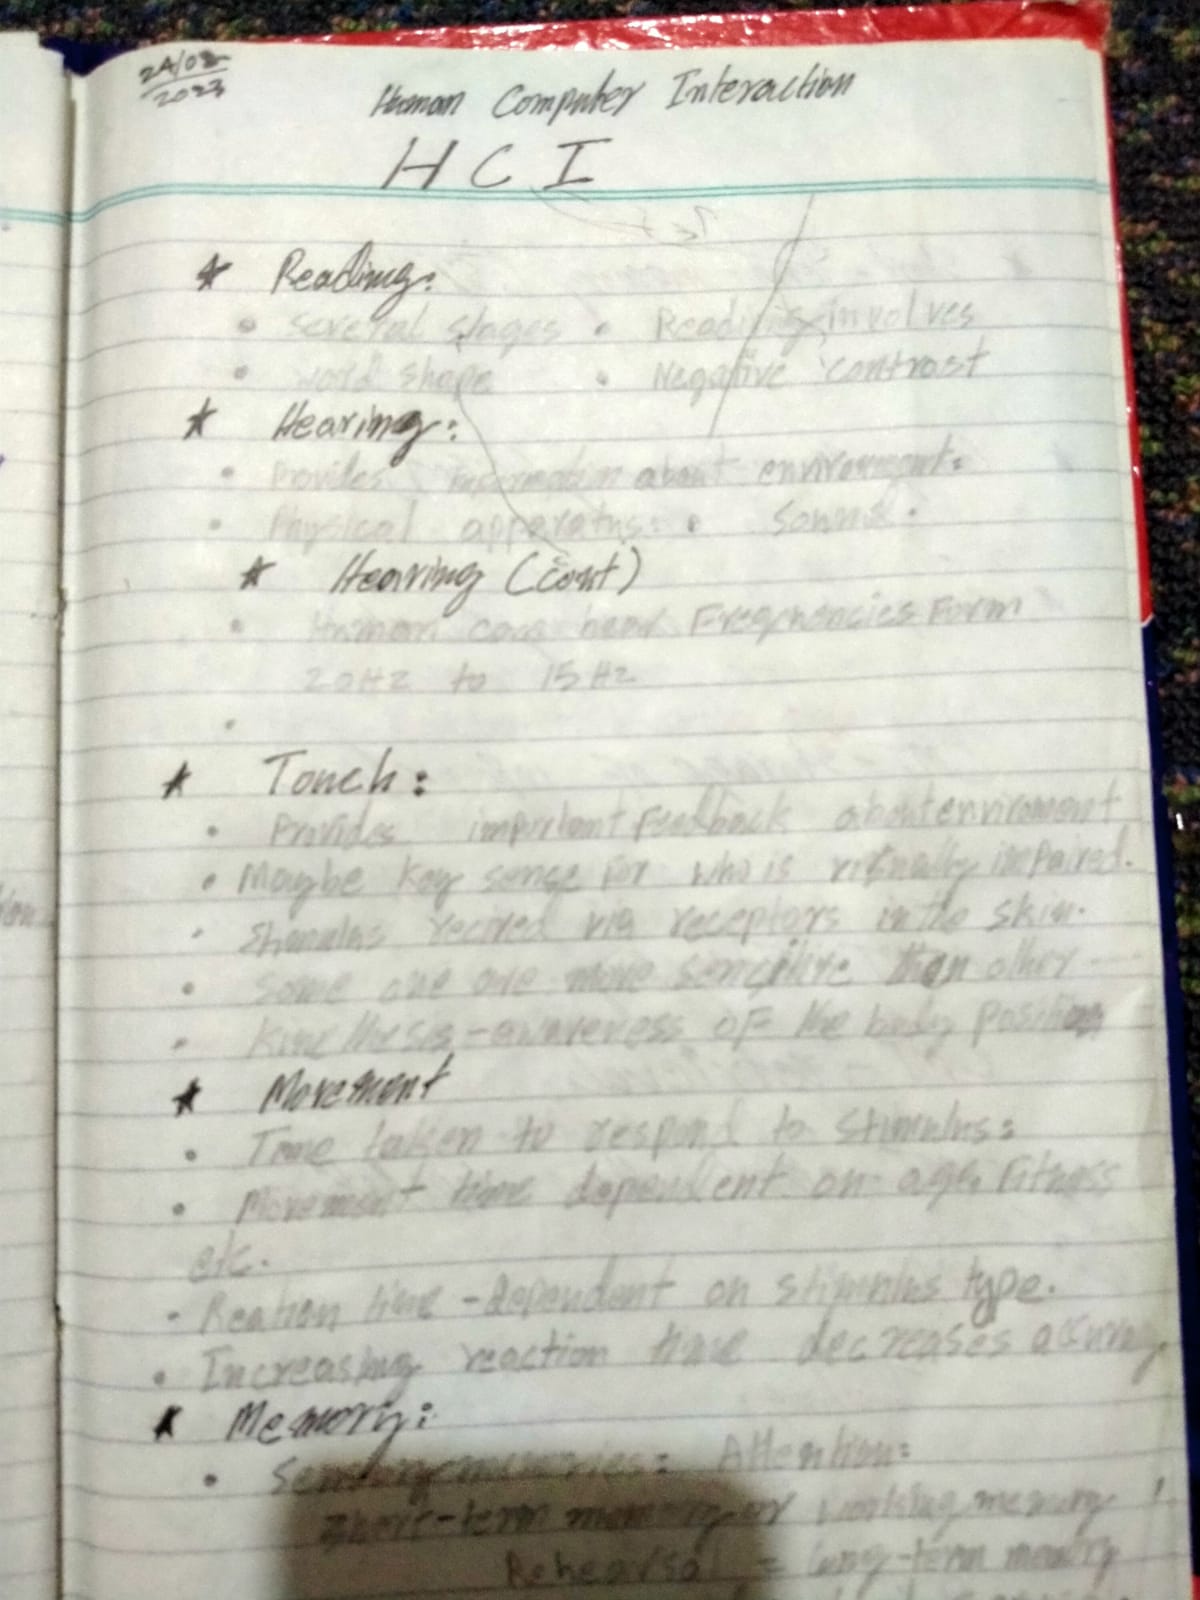 24/08
2023
Human Computer Interaction
H C I
★ Reading:
• Several stages • Reading involves
• word shape • Negative contrast
★ Hearing:
• Provides information about environment:
• Physical apparatus: • Sound.
★ Hearing (cont)
• Human can hear Frequencies Form
20Hz to 15Hz
•
★ Touch:
• Provides important feedback about enviroment
• Maybe key sense for who is visually impaired.
• Stimulus recived via receptors in the skin.
• Some are are more sencitive than other
• Kinethesis - awareness of the body position
★ Movement
• Time taken to respond to stimulus:
• Movement time dependent on age, Fitness
etc.
- Reation time - dependent on stimulus type.
• Increasing reaction time decreases accuracy.
★ Memory:
• Sensory memories: Attention:
Short-term memory or working memory
Rehearsal = long-term memory